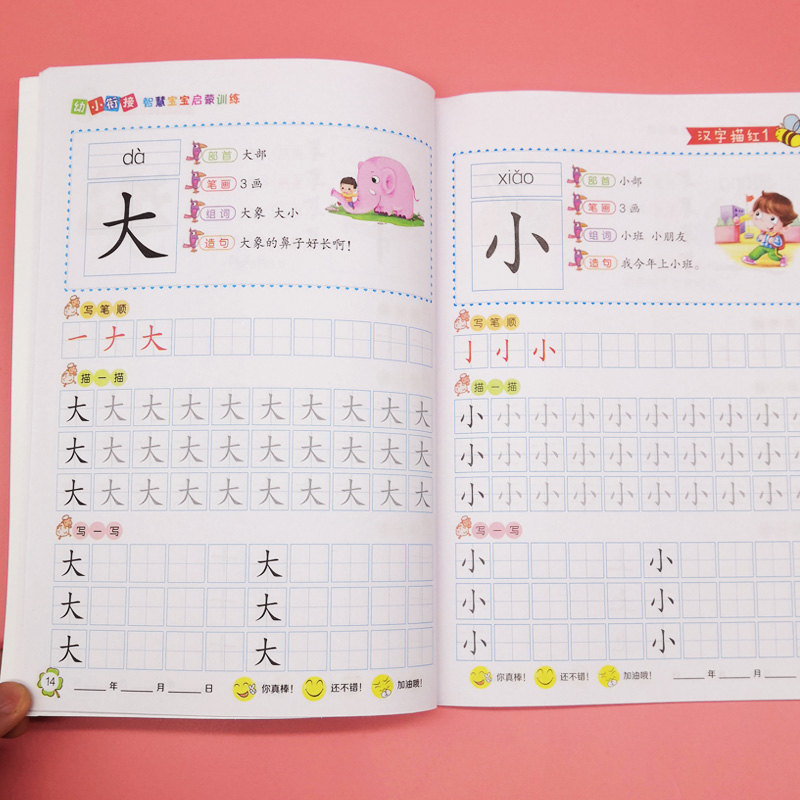 幼小衔接 智慧宝宝启蒙训练
dà
大
部首 大部
笔画 3画
组词 大象 大小
造句 大象的鼻子好长啊!
写笔顺
一 ナ 大
描一描
大 大 大 大 大 大 大 大 大 大
大 大 大 大 大 大 大 大 大 大
大 大 大 大 大 大 大 大 大 大
写一写
大 大
大 大
大 大
14
年 月 日 你真棒! 还不错! 加油哦!
汉字描红1
xiǎo
小
部首 小部
笔画 3画
组词 小班 小朋友
造句 我今年上小班。
写笔顺
亅 小 小
描一描
小 小 小 小 小 小 小 小 小
小 小 小 小 小 小 小 小 小
小 小 小 小 小 小 小 小 小
写一写
小 小
小 小
小 小
你真棒! 还不错! 加油哦! 年 月